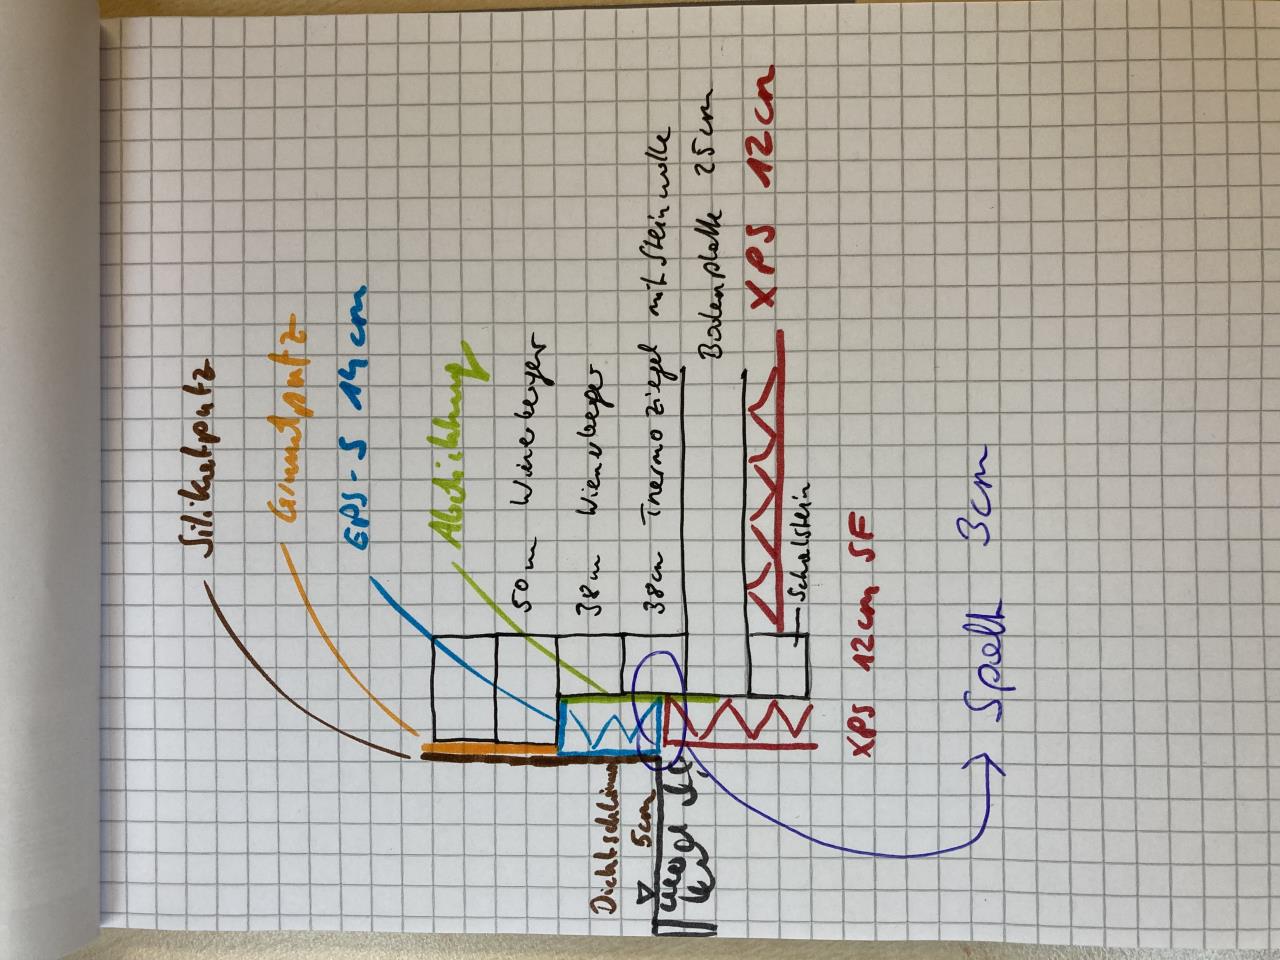 Silikatputz
Grundputz
EPS-S 14cm
Abdichtung
50cm Wienerberger
38cm Wienerberger
38cm Thermoziegel mit Steinwolle
Bodenplatte 25cm
XPS 12cm
Schalstein
XPS 12cm SF
Spalt 3cm
Dichtschlämme
5cm